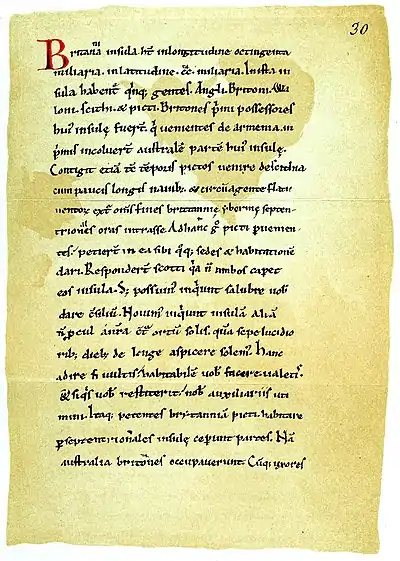 30
Britannia insula hr̄ inlongitudine octingenta
miliaria. inlatitudine .cc. miliaria. Inista in
sula habent q̄nq; gentes. Angli. Britoni.
loni. scithi. & picti. Britones p̄mi possessores
huı' insulę fuer̄t. q̄ venientes de armenia. in
p̄mis incoluert̄ australē partē huı' insulę.
Contigit etiā tē tēporis pictos venire descithia
cum paucis longis navib; & circūagente flatu
ventoꝝ ext̄ om̄s fines brittannię ybernię septen-
trion̄les oras intrasse. Adhanc g̊ picti pvenien-
tes. petiert̄ in ea sibi q̄q; sedes & habitationē
dari. Respondert̄ scotti q̄a n̄ ambos cap̄et
eos insula. S; possum' inq̄unt salubre vob̄
dare c̄siliū. Novim' inq̄unt insulā aliā
n̄ p̄cul a n̄ra c̄t̄ ortū solis. quā sepe lucidio
rib; dieb; de longe aspicere solem'. Hanc
adire si vultis. habitabilē vob̄ facere valetis.
& siq̄s vob̄ restiterit. nob̄ auxiliariis uti
mini. Itaq; petentes brytanniā picti. habitare
p septentrion̄les insulę cepunt partes. Nā
australia brit̄nes occupaverunt. Cūq; uxores